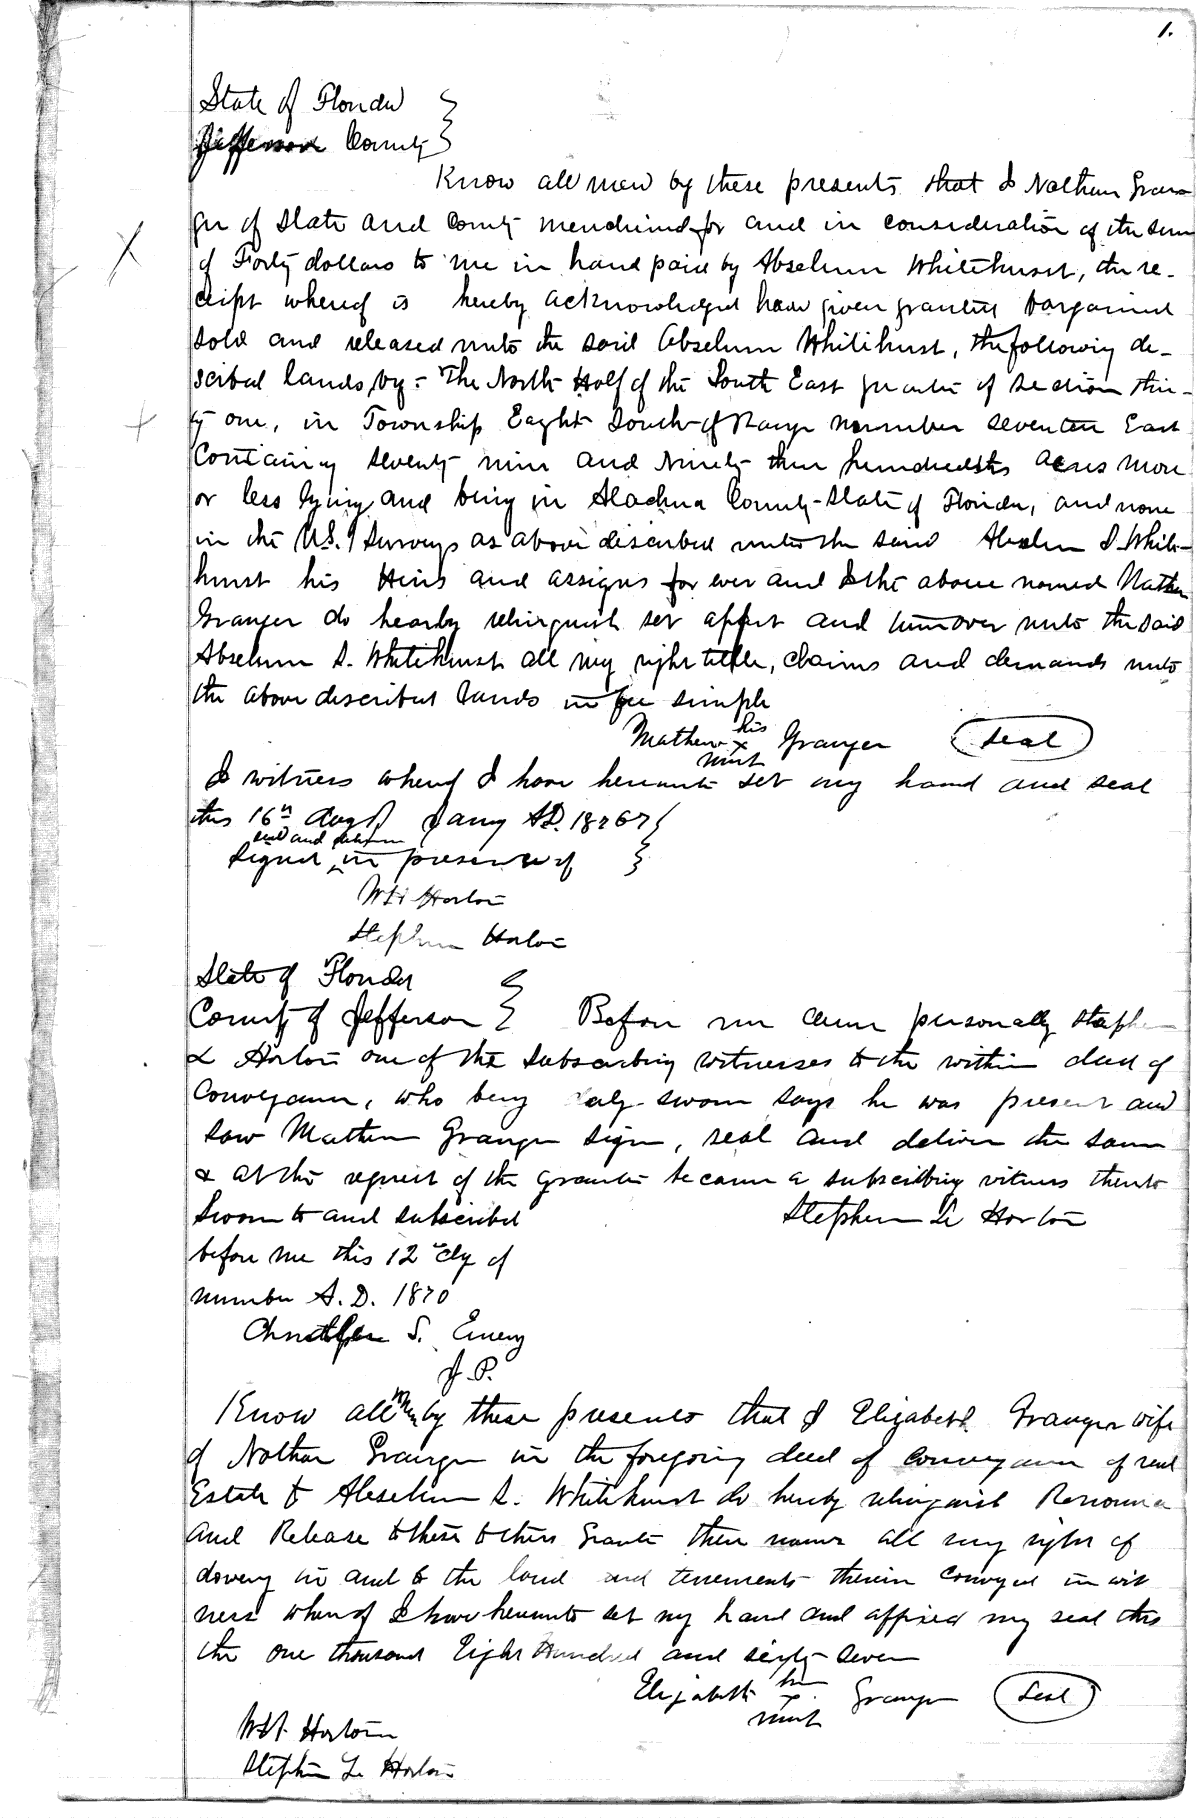 1.
State of Florida
Jefferson County
Know all men by these presents that I Nathan Gran-
ger of State and County mentioned for and in consideration of the sum
of Forty dollars to me in hand paid by Abselum Whitehurst, the re-
ceipt whereof is hereby acknowledged have given granted bargained
sold and released unto the said Abselum Whitehurst, the following de-
scribed lands, by:- The North Half of the South East quarter of Section thir-
ty one, in Township Eaght South of Range number seventeen East
Containing seventy nine and Ninety three hundredths acres more
or less lying and being in Alachua County State of Florida, and none
in the U.S. Surveys as above discribed unto the said Abselum S. White-
hurst his Heirs and assigns for ever and I the above named Nathan
Granger do hearby relinquish set appart and turnover unto the said
Abselum S. Whitehurst all my right tittle, claims and demands unto
the above discribed lands in fee simple
Mathew his x mark Granger Seal
I witness whereof I have hereunto set my hand and seal
this 16th day of Jany A.D. 1867
seal and
Signed in presence of
W H Horton
Stephen Horton
State of Florida
County of Jefferson Before me came personally Stephen
L Horton one of the Subscribing witnesses to the within deed of
Conveyance, who being duly sworn says he was present and
saw Mathew Granger sign, seal and deliver the same
& at the request of the grantee became a subscribing witness thereto
Sworn to and subscribed Stephen L Horton
before me this 12 dy of
number A.D. 1870
S. Emery
J.P.
Know all men by these presents that I Elizabeth Granger wife
of Nathan Granger in the foregoing deed of conveyance of real
Estate to Abselum S. Whitehurst do hereby relinquish Renounce
and Release to these Grantee then all my right of
dowery in and to the land and tenements therein conveyed in wit
ness whereof I have hereunto set my hand and affixed my seal this
the one thousand Eight Hundred and sixty seven
Elizabeth her x mark Granger Seal
W H Horton
Stephen L Horton